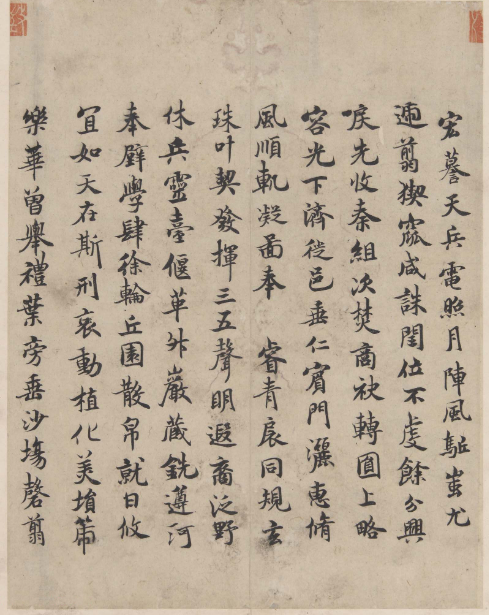 宏謩天兵電照月陣風駈蚩尤
迊翦猰窳咸誅閏位不虔餘分興
唳先收秦組次焚商袂轉圓上略
容光下濟徙邑垂仁賓門灑惠脩
風順軌凝啚奉 睿青扆同規玄
珠叶契發揮三五聲明遐裔泛野
休兵靈臺偃革外巖藏銑遵河
奉璧學肆徐輪丘園散帛就日攸
冝如天在斯刑哀動植化美堦萠
樂華曾舉禮葉旁垂沙塲罄翦